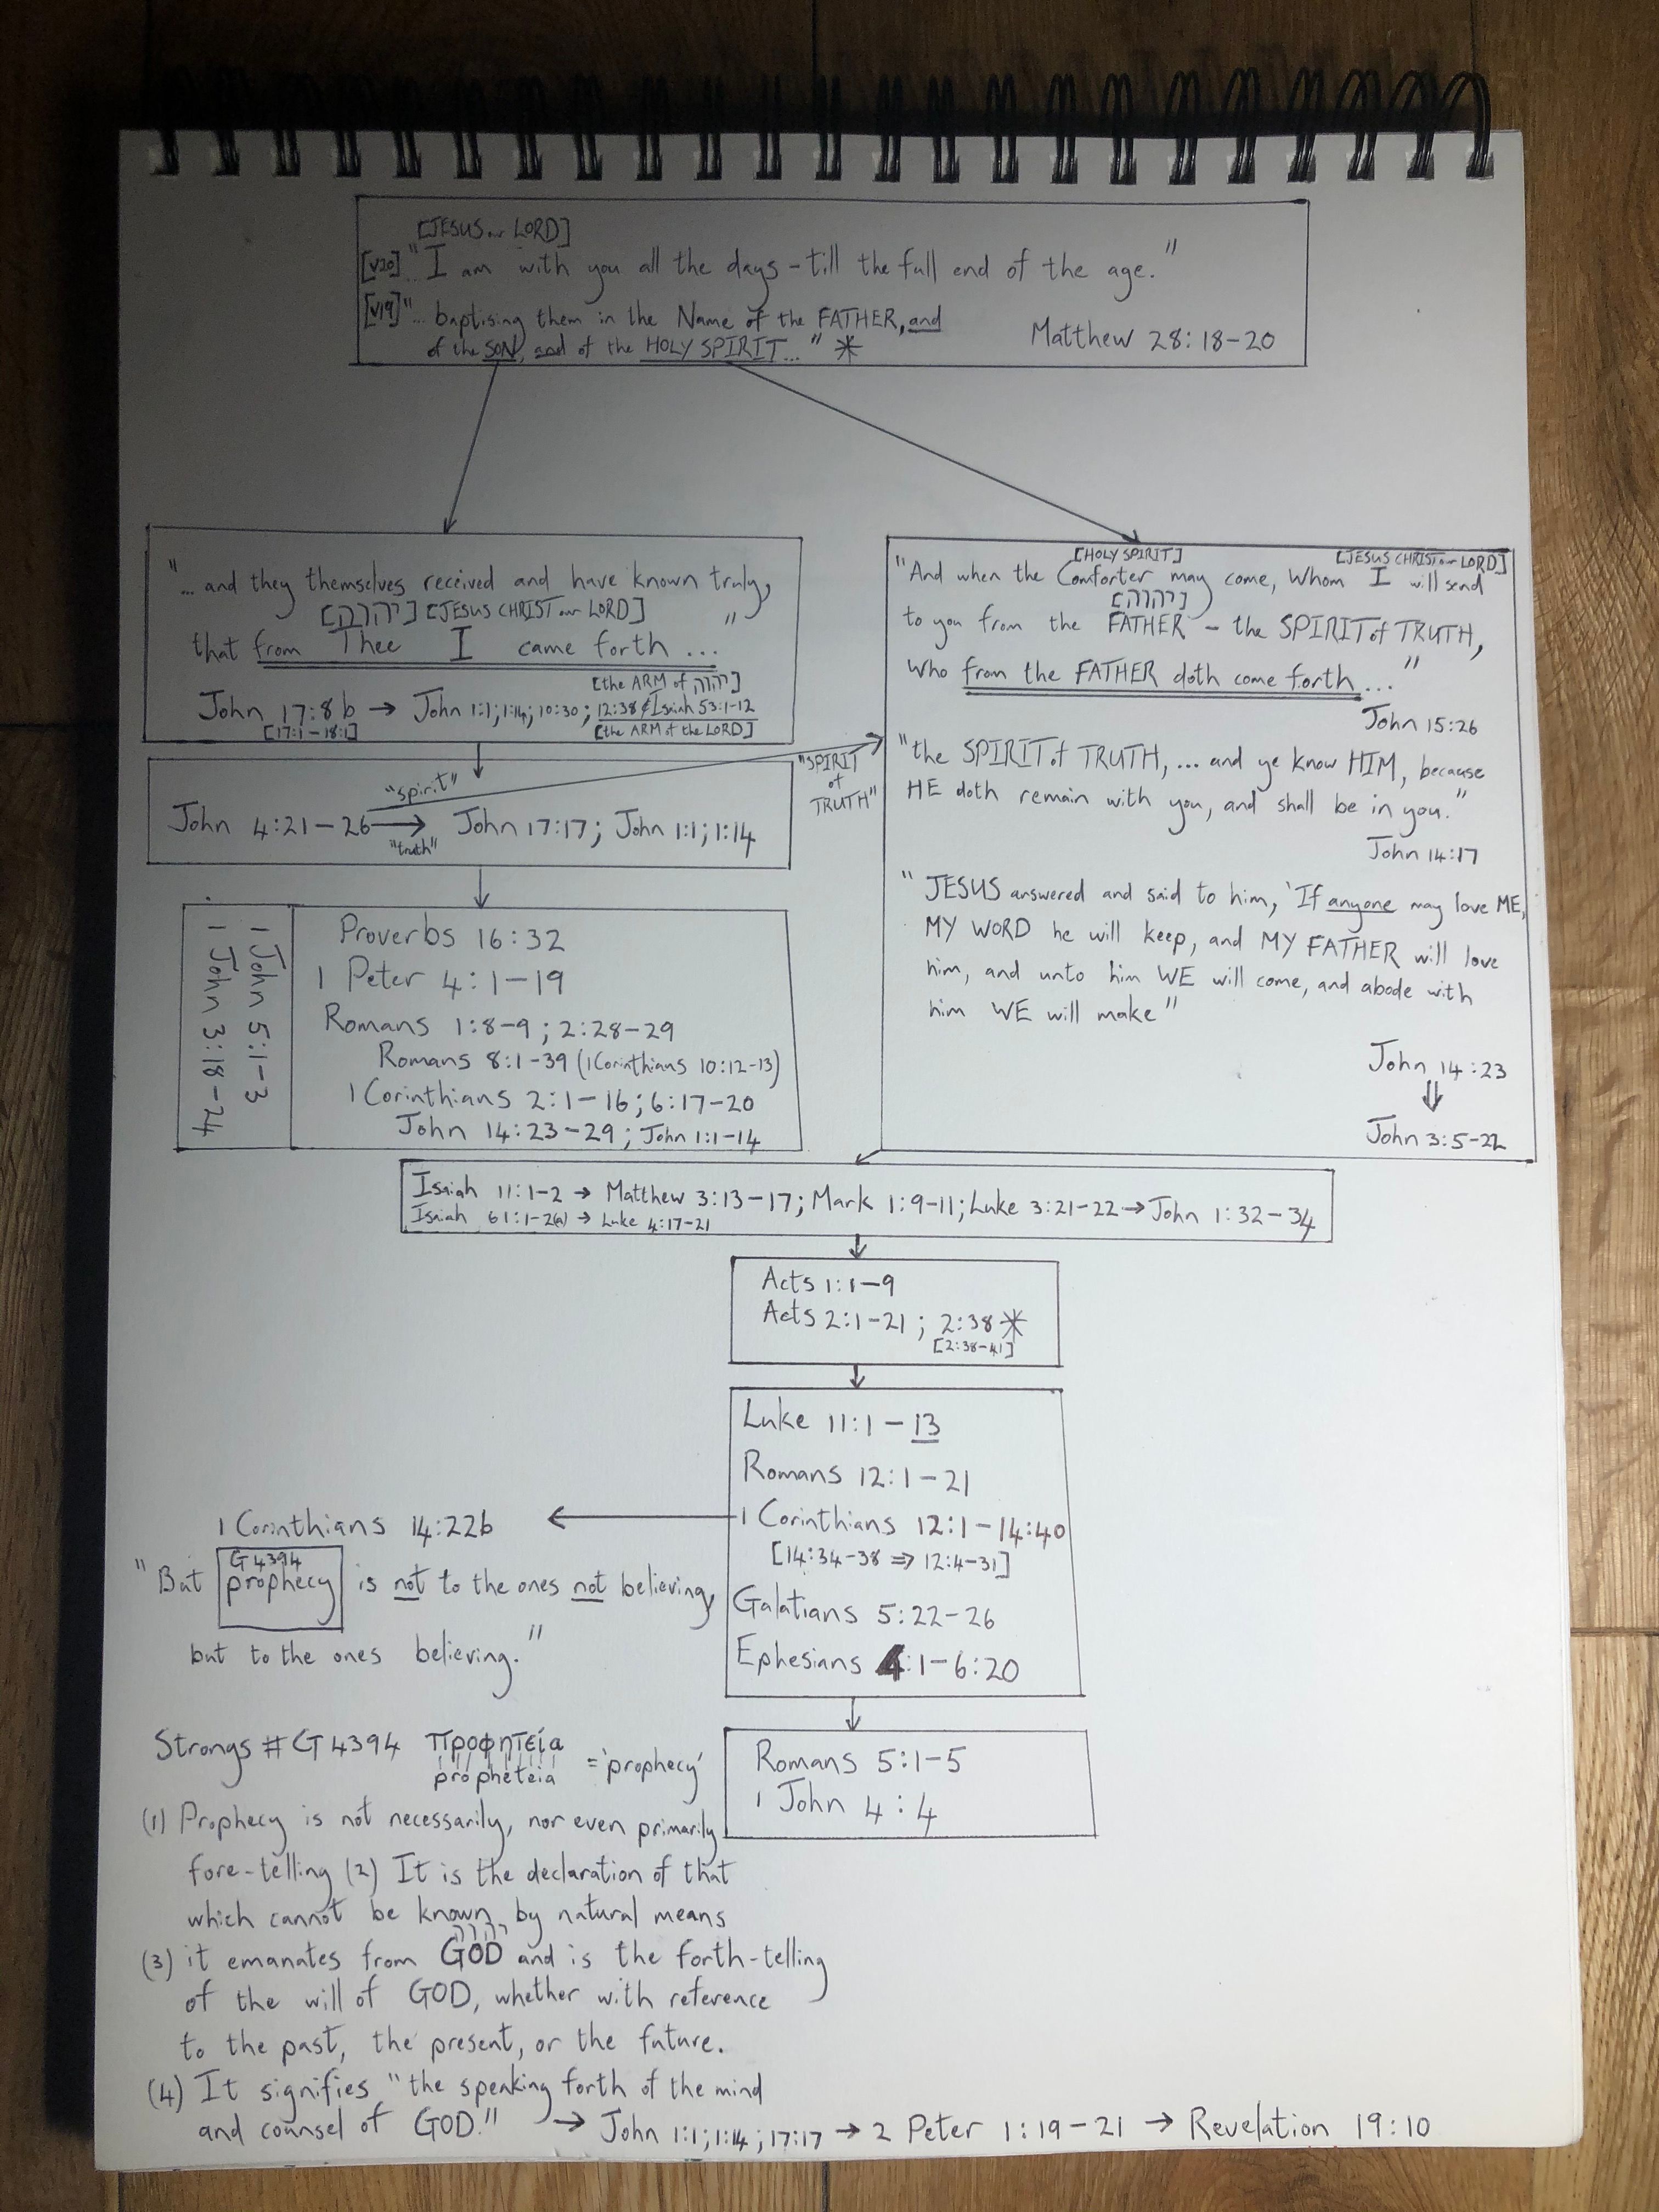 [JESUS our LORD]
[v20] "I am with you all the days - till the full end of the age."
[v19] "... baptising them in the Name of the FATHER, and
of the SON, and of the HOLY SPIRIT..." *
Matthew 28:18-20
"... and they themselves received and have known truly,
[יהוה] [JESUS CHRIST our LORD]
that from Thee I came forth ..."
[the ARM of יהוה]
John 17:8b → John 1:1; 1:14; 10:30; 12:38 & Isaiah 53:1-12
[17:1-18:1] [the ARM of the LORD]
"spirit"
John 4:21-26 → John 17:17; John 1:1; 1:14
"truth"
"SPIRIT
of
TRUTH"
1 John 5:1-3
1 John 3:18-24
Proverbs 16:32
1 Peter 4:1-19
Romans 1:8-9; 2:28-29
Romans 8:1-39 (1 Corinthians 10:12-13)
1 Corinthians 2:1-16; 6:17-20
John 14:23-29; John 1:1-14
[HOLY SPIRIT] [JESUS CHRIST our LORD]
"And when the Comforter may come, Whom I will send
[יהוה]
to you from the FATHER - the SPIRIT of TRUTH,
Who from the FATHER doth come forth..."
John 15:26
"the SPIRIT of TRUTH, ... and ye know HIM, because
HE doth remain with you, and shall be in you."
John 14:17
"JESUS answered and said to him, 'If anyone may love ME,
MY WORD he will keep, and MY FATHER will love
him, and unto him WE will come, and abode with
him WE will make"
John 14:23
⇓
John 3:5-22
Isaiah 11:1-2 → Matthew 3:13-17; Mark 1:9-11; Luke 3:21-22 → John 1:32-34
Isaiah 61:1-2(a) → Luke 4:17-21
Acts 1:1-9
Acts 2:1-21; 2:38 *
[2:38-41]
Luke 11:1-13
Romans 12:1-21
1 Corinthians 12:1-14:40
[14:34-38 ⇒ 12:4-31]
Galatians 5:22-26
Ephesians 4:1-6:20
Romans 5:1-5
1 John 4:4
1 Corinthians 14:22b
G4394
"But prophecy is not to the ones not believing,
but to the ones believing."
Strongs #G4394 προφητεία = 'prophecy'
propheteia
(1) Prophecy is not necessarily, nor even primarily
fore-telling (2) It is the declaration of that
which cannot be known by natural means
יהוה
(3) it emanates from GOD and is the forth-telling
of the will of GOD, whether with reference
to the past, the present, or the future.
(4) It signifies "the speaking forth of the mind
and counsel of GOD." → John 1:1; 1:14; 17:17 → 2 Peter 1:19-21 → Revelation 19:10